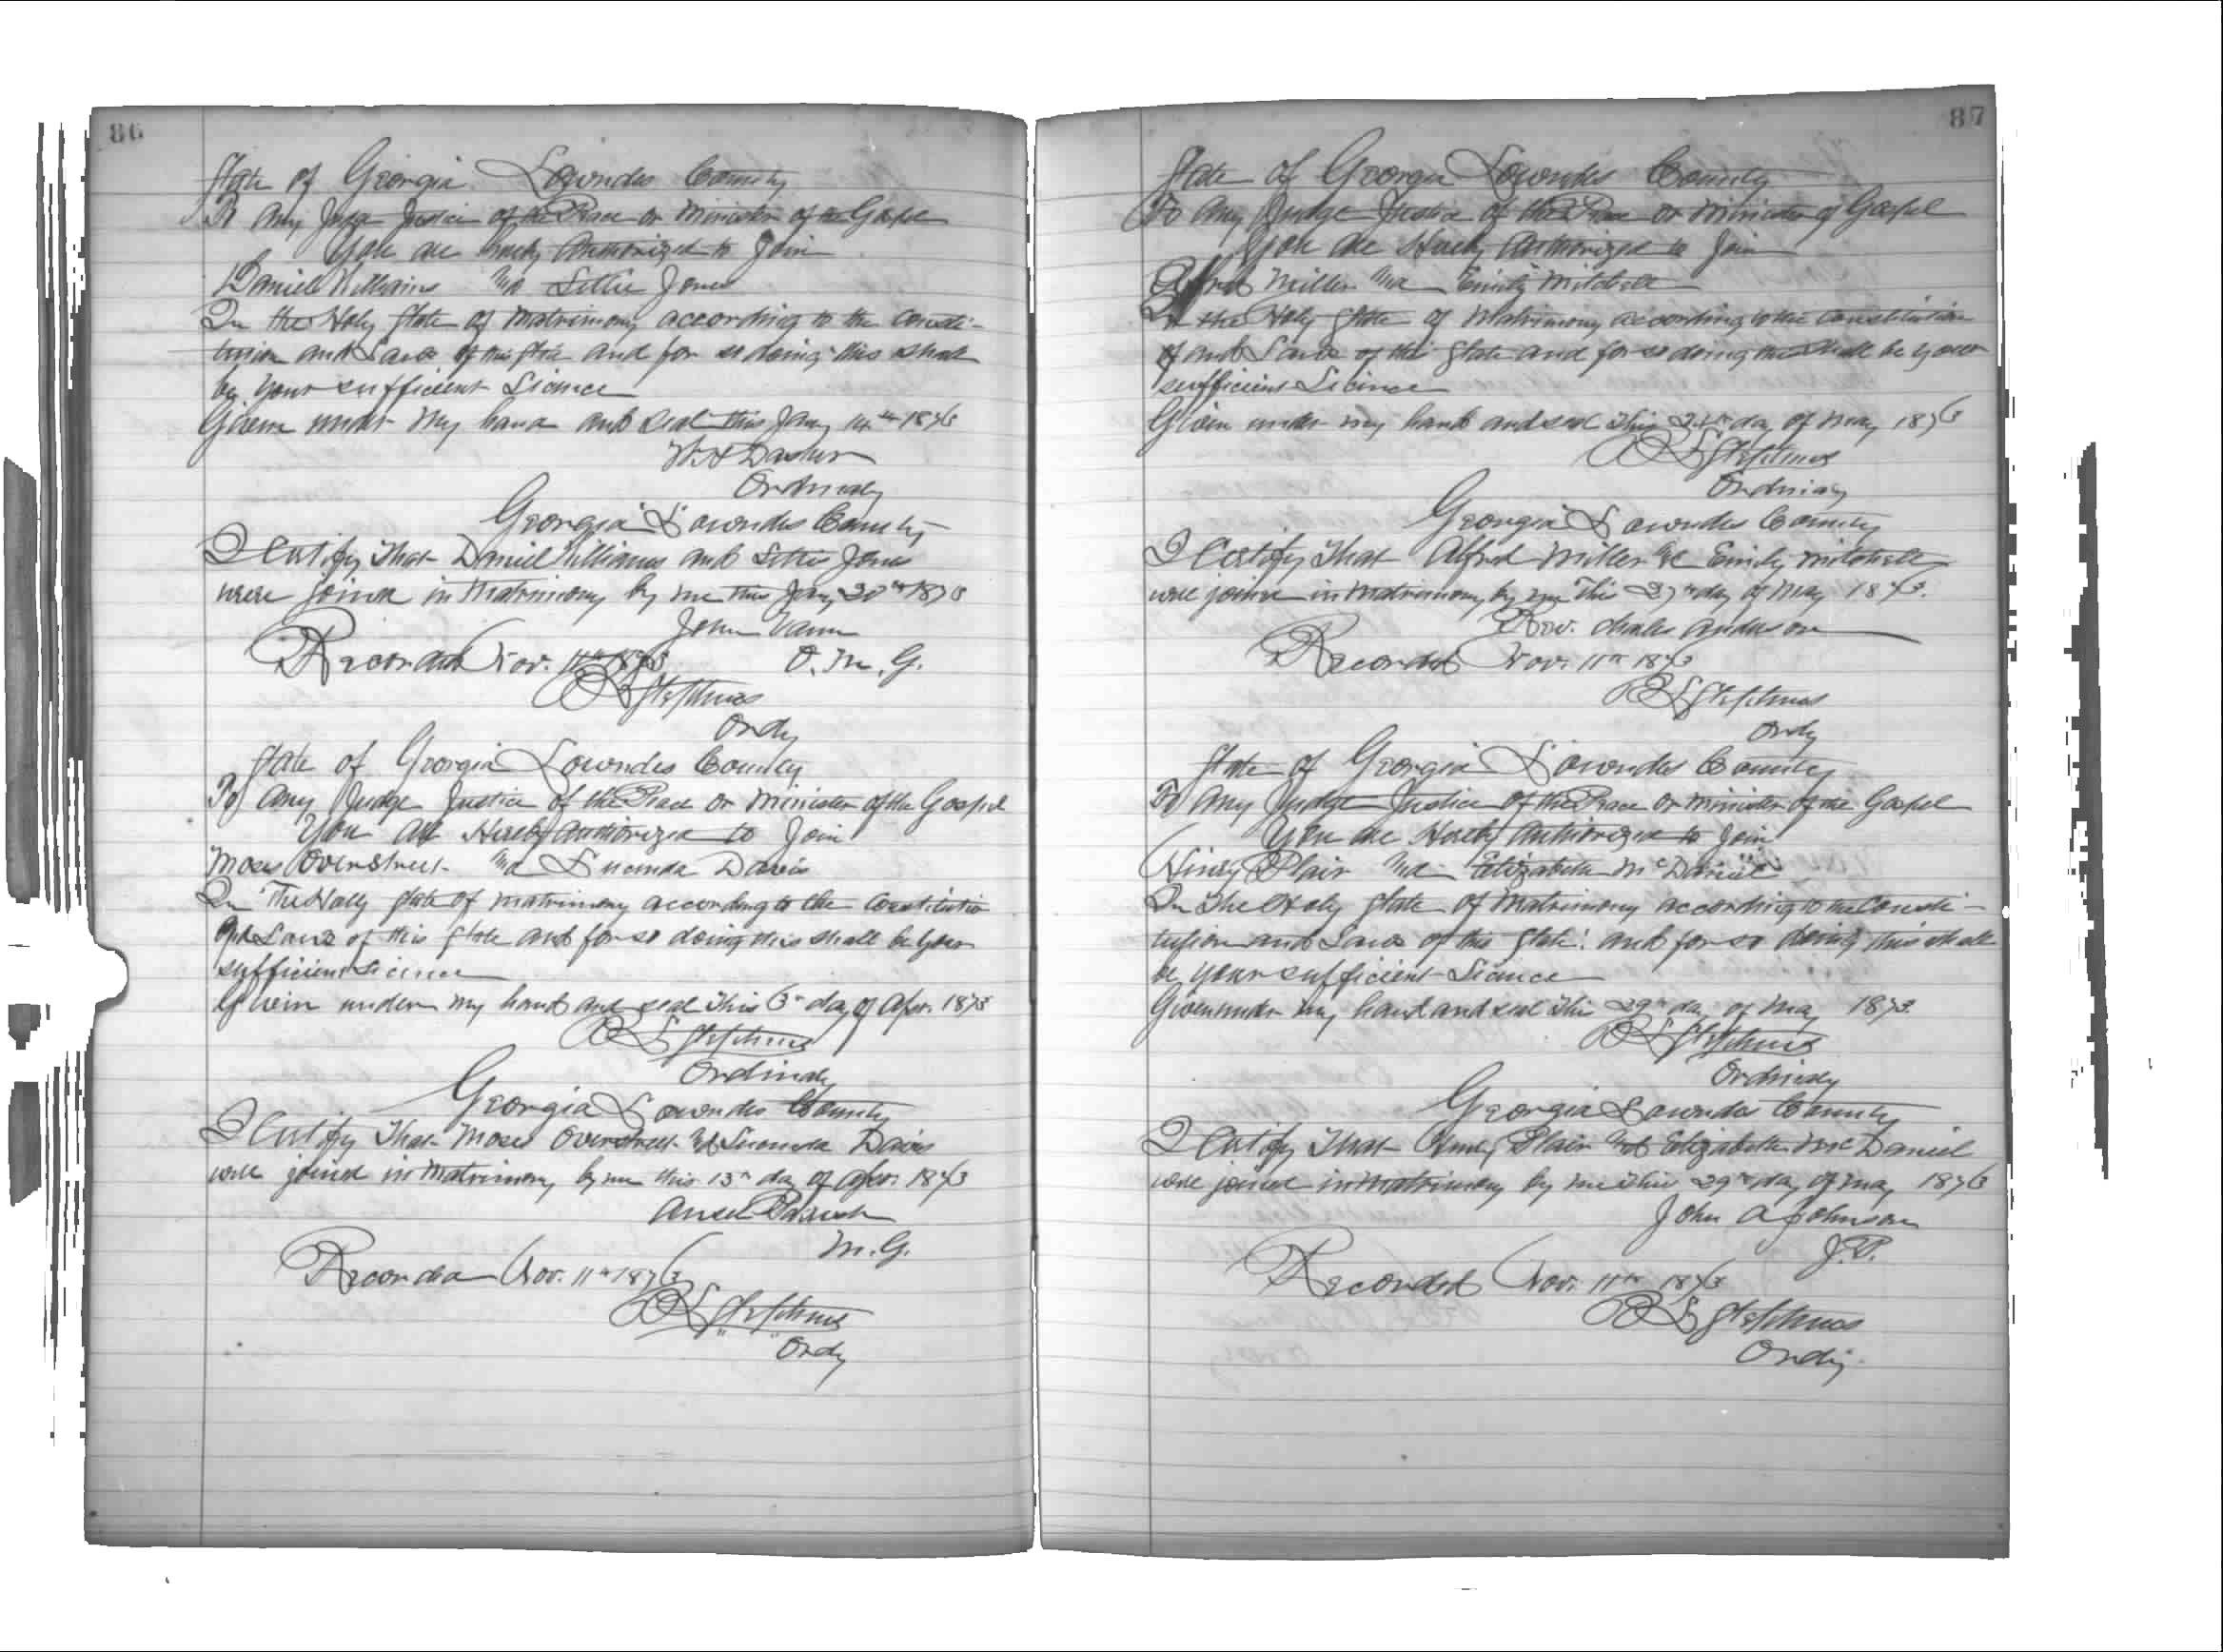 86
State of Georgia Lowndes County
To Any Judge Justice of the Peace or Minister of the Gospel
You are hereby Authorized to Join
Daniel Williams and Lettie Jones
In the Holy State of Matrimony according to the Consti-
tution and Laws of this State and for so doing this shall
be your sufficient Licince
Given under My hand and seal this Jany 14th 1873
W. H Dasher
Ordinary
Georgia Lowndes County
I Certify That Daniel Williams and Lettie Jones
were joined in Matrimony by me this Jany 20th 1873
John Vann
O. M. G.
Recorded Nov. 11th 1873
Stephens
Ordy
State of Georgia Lowndes County
To Any Judge Justice of the Peace or Minister of the Gospel
You are Hereby Authorized to Join
Moses Overstreet and Lucinda Davis
In The Holy State of Matrimony according to the Constitution
and Laws of this State and for so doing this shall be your
sufficient Licince
Given under my hand and seal this day of Apr. 1873
Stephens
Ordinary
Georgia Lowndes County
I Certify That Moses Overstreet and Lucinda Davis
were joined in Matrimony by me this 13th day of Apr. 1873
Ansel Parrish
M. G.
Recorded Nov. 11th 1873
Stephens
Ordy
87
State of Georgia Lowndes County
To Any Judge Justice of the Peace or Minister of Gospel
You are Hereby Authorized to Join
Alfred Miller and Emily Mitchell
In the Holy State of Matrimony according to the Constitution
of and Laws of this State and for so doing this shall be your
sufficient Licince
Given under my hand and seal this day of May 1873
Stephens
Ordinary
Georgia Lowndes County
I Certify That Alfred Miller and Emily Mitchell
were joined in Matrimony by me This 27th day of May 1873.
Rev. Charles Anderson
Recorded Nov. 11th 1873
Stephens
Ordy
State of Georgia Lowndes County
To Any Judge Justice of the Peace or Minister of the Gospel
You are Hereby Authorized to Join
Henry Plair and Elizabeth McDaniel
In The Holy State of Matrimony according to the Consti-
tution and Laws of this State and for so doing this shall
be your sufficient Licince
Given under my hand and seal this 29th day of May 1873
Stephens
Ordinary
Georgia Lowndes County
I Certify That Henry Plair and Elizabeth McDaniel
were joined in Matrimony by me this 29th day of May 1873
John A Johnson
J. P.
Recorded Nov. 11th 1873
Stephens
Ordy